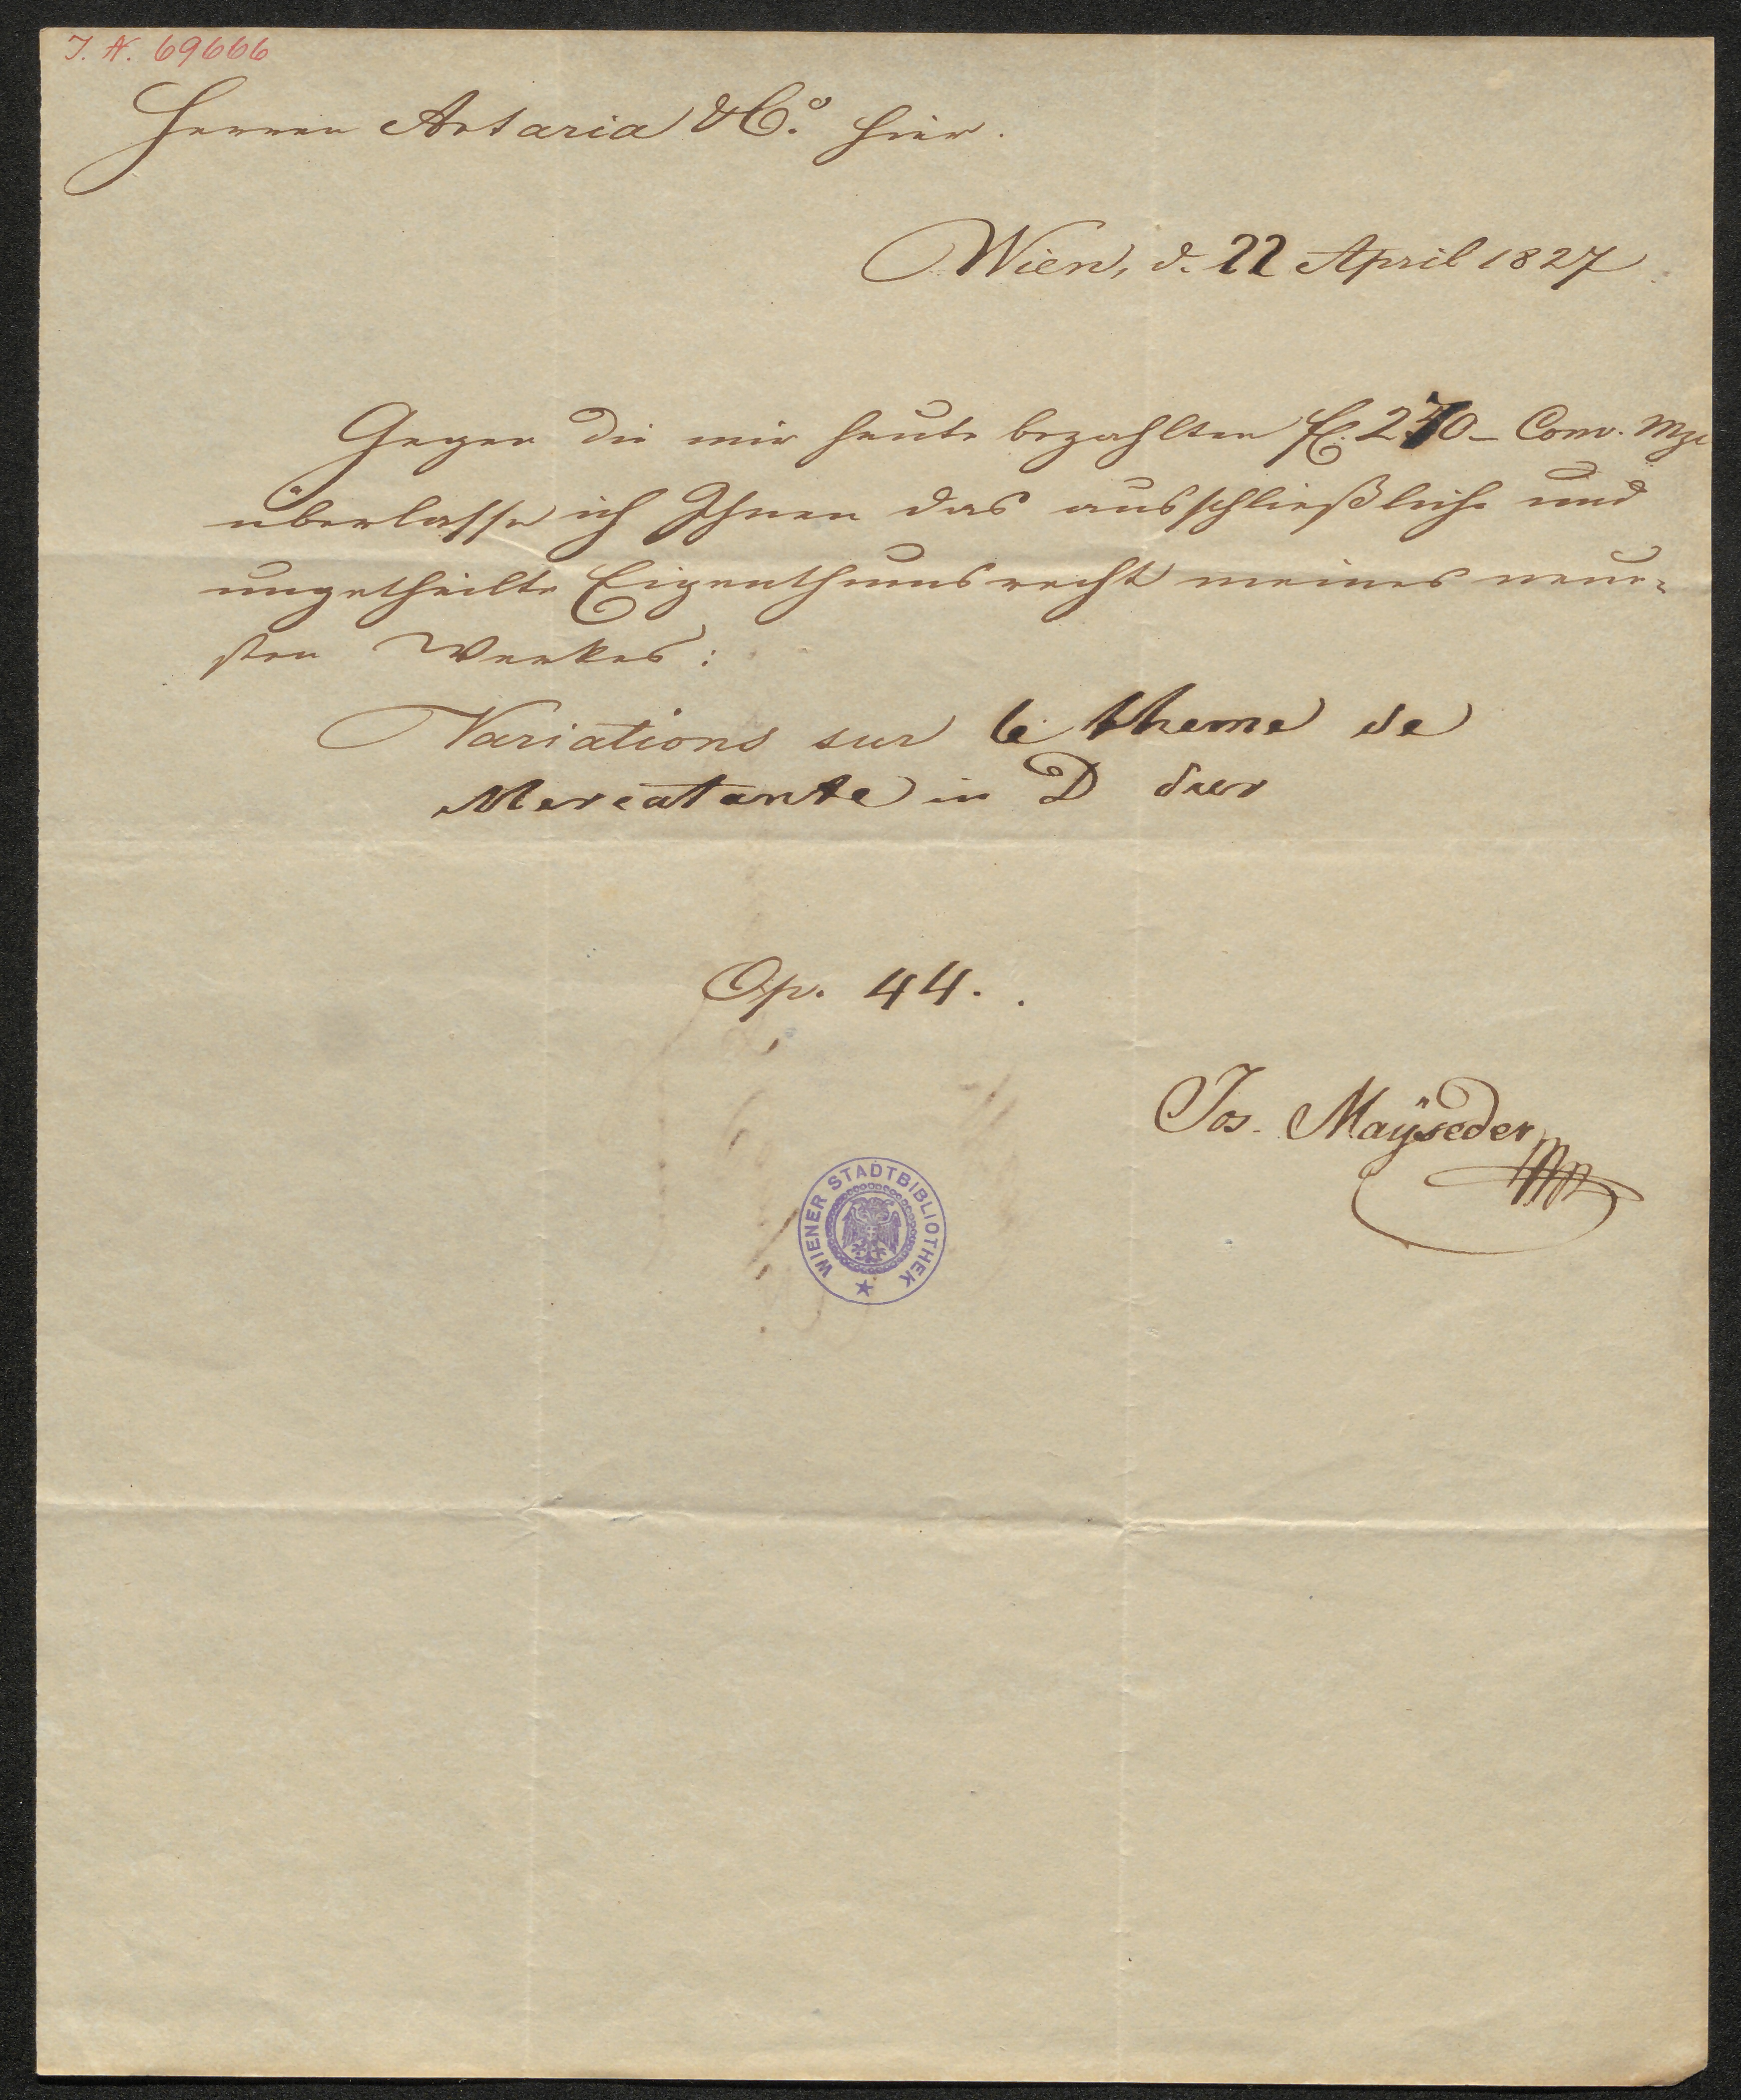 J. N. 69666
Herren Artaria & Co. hier.
Wien, d. 22 April 1827
Gegen die mir heute bezahlten f. 270 – Conv. Mze
überlasse ich Ihnen das ausschließliche und
ungetheilte Eigenthumsrecht meines neue-
sten Werkes:
Variations sur le theme de
Mercatante in D dur
Op. 44.
Jos. Maÿseder
WIENER STADTBIBLIOTHEK